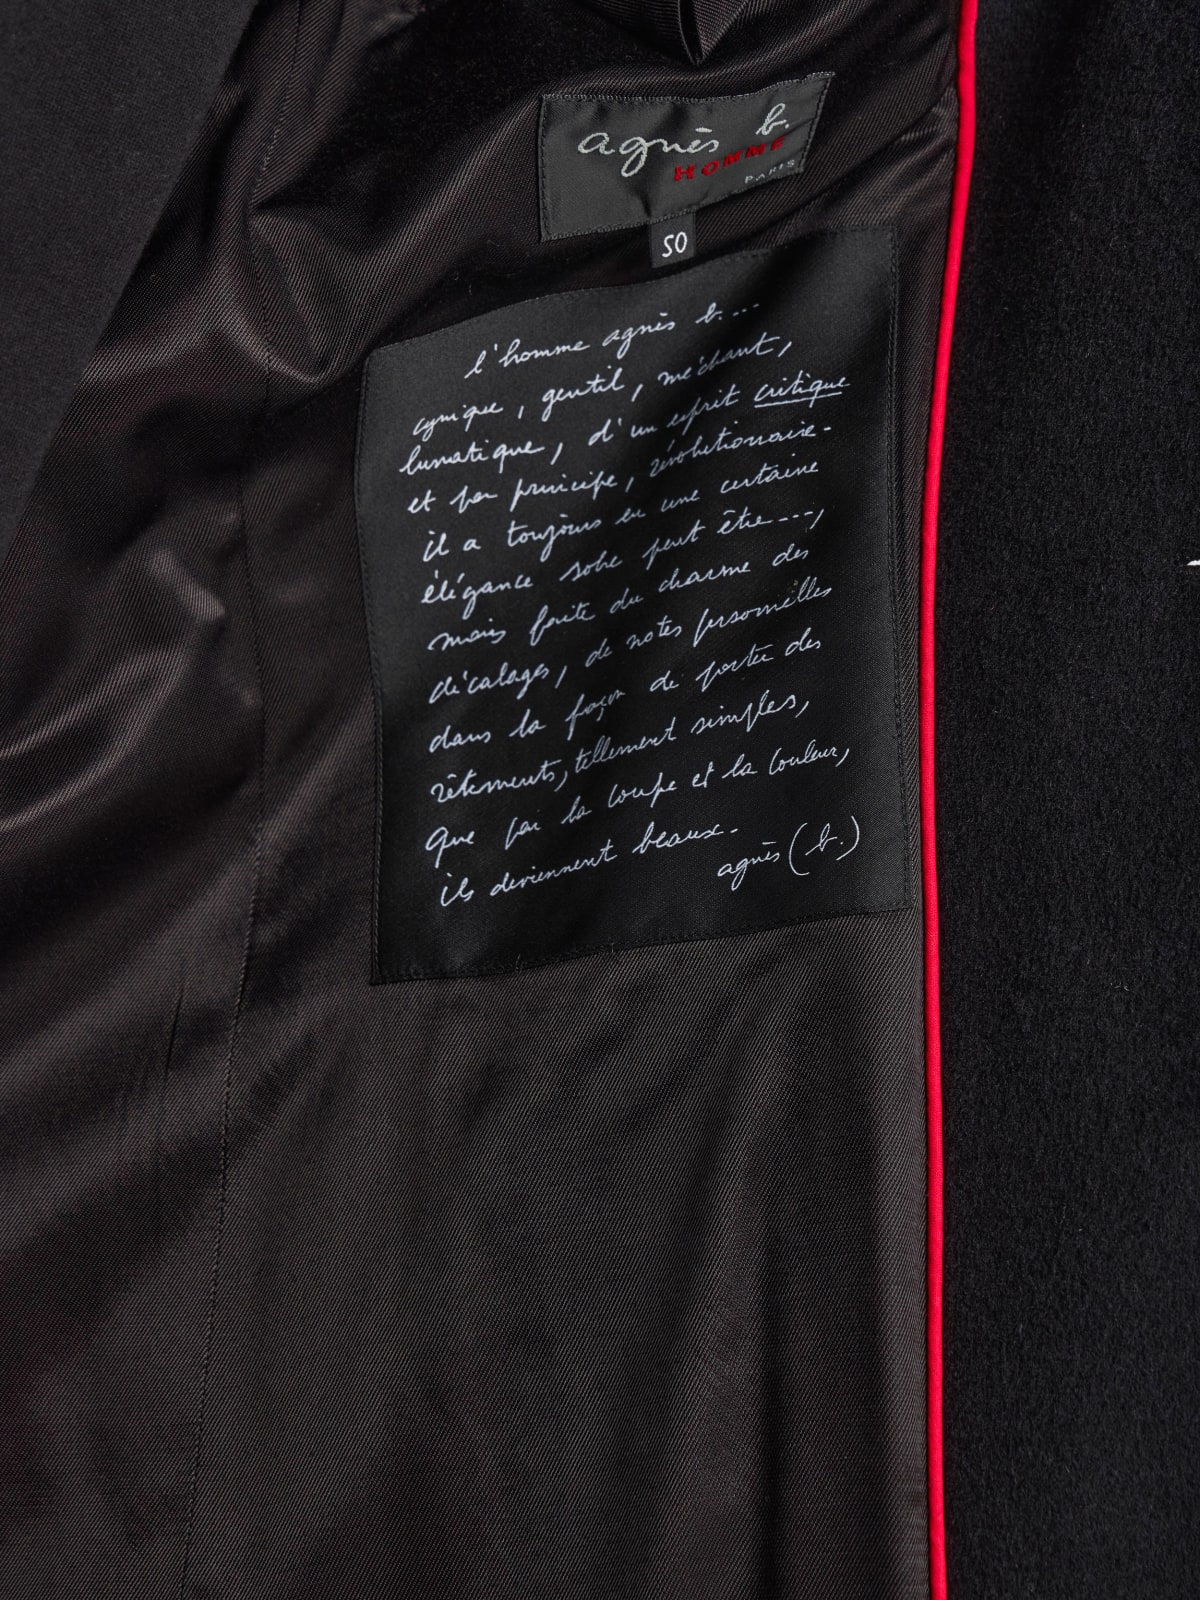 agnès b.
HOMME
PARIS
50
l'homme agnès b....
cynique, gentil, méchant,
lunatique, d'un esprit critique
et par principe, révolutionnaire.
il a toujours eu une certaine
élégance sobre peut être...,
mais faite du charme des
décalages, de notes personnelles
dans la façon de porter des
vêtements, tellement simples,
que par la coupe et la couleur,
ils deviennent beaux.
agnès (b.)